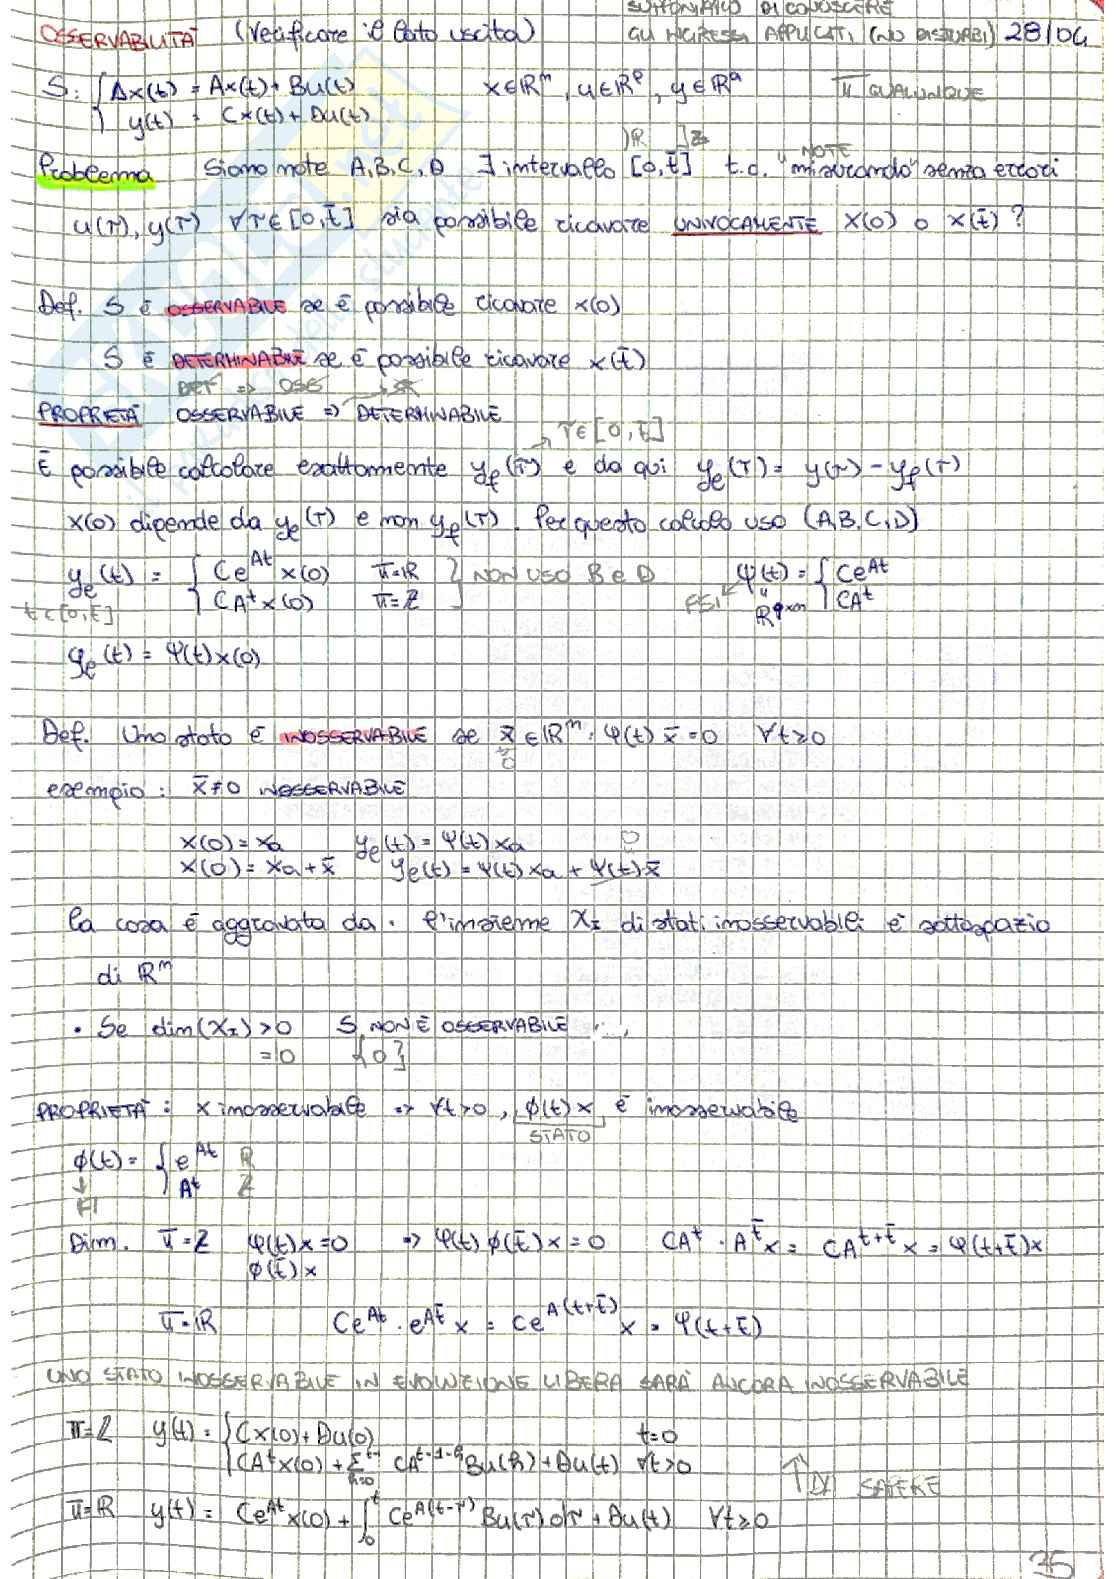 SUPPONIAMO DI CONOSCERE
OSSERVABILITÀ (Verificare il lato uscita) GLI INGRESSI APPLICATI (NO DISTURBI) 28/04
S: { Δx(t) = Ax(t) + Bu(t) x∈ℝⁿ, u∈ℝᵖ, y∈ℝ^q π QUALUNQUE
y(t) = Cx(t) + Du(t)
)ℝ ]ℤ NOTE
Problema Siano note A, B, C, D ∃ intervallo [0, t̄] t.c. "misurando" senza errori
u(τ), y(τ) ∀τ∈[0, t̄] sia possibile ricavare UNIVOCAMENTE x(0) o x(t̄)?
Def. S è OSSERVABILE se è possibile ricavare x(0)
S è DETERMINABILE se è possibile ricavare x(t̄)
DET => OSS
PROPRIETÀ OSSERVABILE => DETERMINABILE
τ∈[0, t̄]
È possibile calcolare esattamente y_f(τ) e da qui y_e(τ) = y(τ) - y_f(τ)
x(0) dipende da y_e(τ) e non y_f(τ). Per questo calcolo uso (A, B, C, D)
y_e(t) = { Ce^{At} x(0) π=ℝ } NON USO B e D ψ(t) = { Ce^{At}
CA^t x(0) π=ℤ PSI ℝ^{q×n} CA^t
t∈[0, t̄]
y_e(t) = ψ(t) x(0)
Def. Uno stato è INOSSERVABILE se x̄ ∈ℝⁿ: ψ(t) x̄ = 0 ∀t≥0
0
esempio: x̄≠0 INOSSERVABILE
x(0) = xa y_e(t) = ψ(t) xa 0
x(0) = xa + x̄ y_e(t) = ψ(t) xa + ψ(t) x̄
la cosa è aggravata da • l'insieme X_I di stati inosservabili è sottospazio
di ℝⁿ
• Se dim(X_I) > 0 S NON È OSSERVABILE
= 0 {0}
PROPRIETÀ: x inosservabile => ∀t>0, ϕ(t) x è inosservabile
STATO
ϕ(t) = { e^{At} ℝ
FI A^t ℤ
Dim. π=ℤ ψ(t) x = 0 => ψ(t) ϕ(t̄) x = 0 CA^t · A^t̄ x = CA^{t+t̄} x = ψ(t+t̄) x
ϕ(t̄) x
π=ℝ Ce^{At} · e^{At̄} x = Ce^{A(t+t̄)} x = ψ(t+t̄)
UNO STATO INOSSERVABILE IN EVOLUZIONE LIBERA SARÀ ANCORA INOSSERVABILE
π=ℤ y(t) = { Cx(0) + Du(0) t=0
CA^t x(0) + Σ_{h=0}^{t-1} CA^{t-1-h} Bu(h) + Du(t) ∀t>0 ↑ DA SAPERE
π=ℝ y(t) = Ce^{At} x(0) + ∫_0^t Ce^{A(t-τ)} Bu(τ) dτ + Du(t) ∀t≥0
35